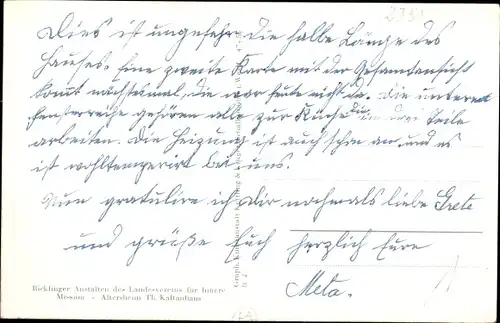 Dies ist ungefähr die halbe Länge des
Hauses. Eine zweite Karte mit der Gesamtansicht
kommt nächstesmal, die war heute nicht da. Die unteren
Fensterreihe gehören alle zur Küche die in drei Teile
arbeiten. Die Heizung ist auch schon an und es
ist wohltemperirt bei uns.
Nun gratulire ich Dir nochmals liebe Grete
und grüße Euch herzlich Eure
Meta.
Ricklinger Anstalten des Landesvereins für Innere
Mission - Altersheim Th. Kaftanhaus